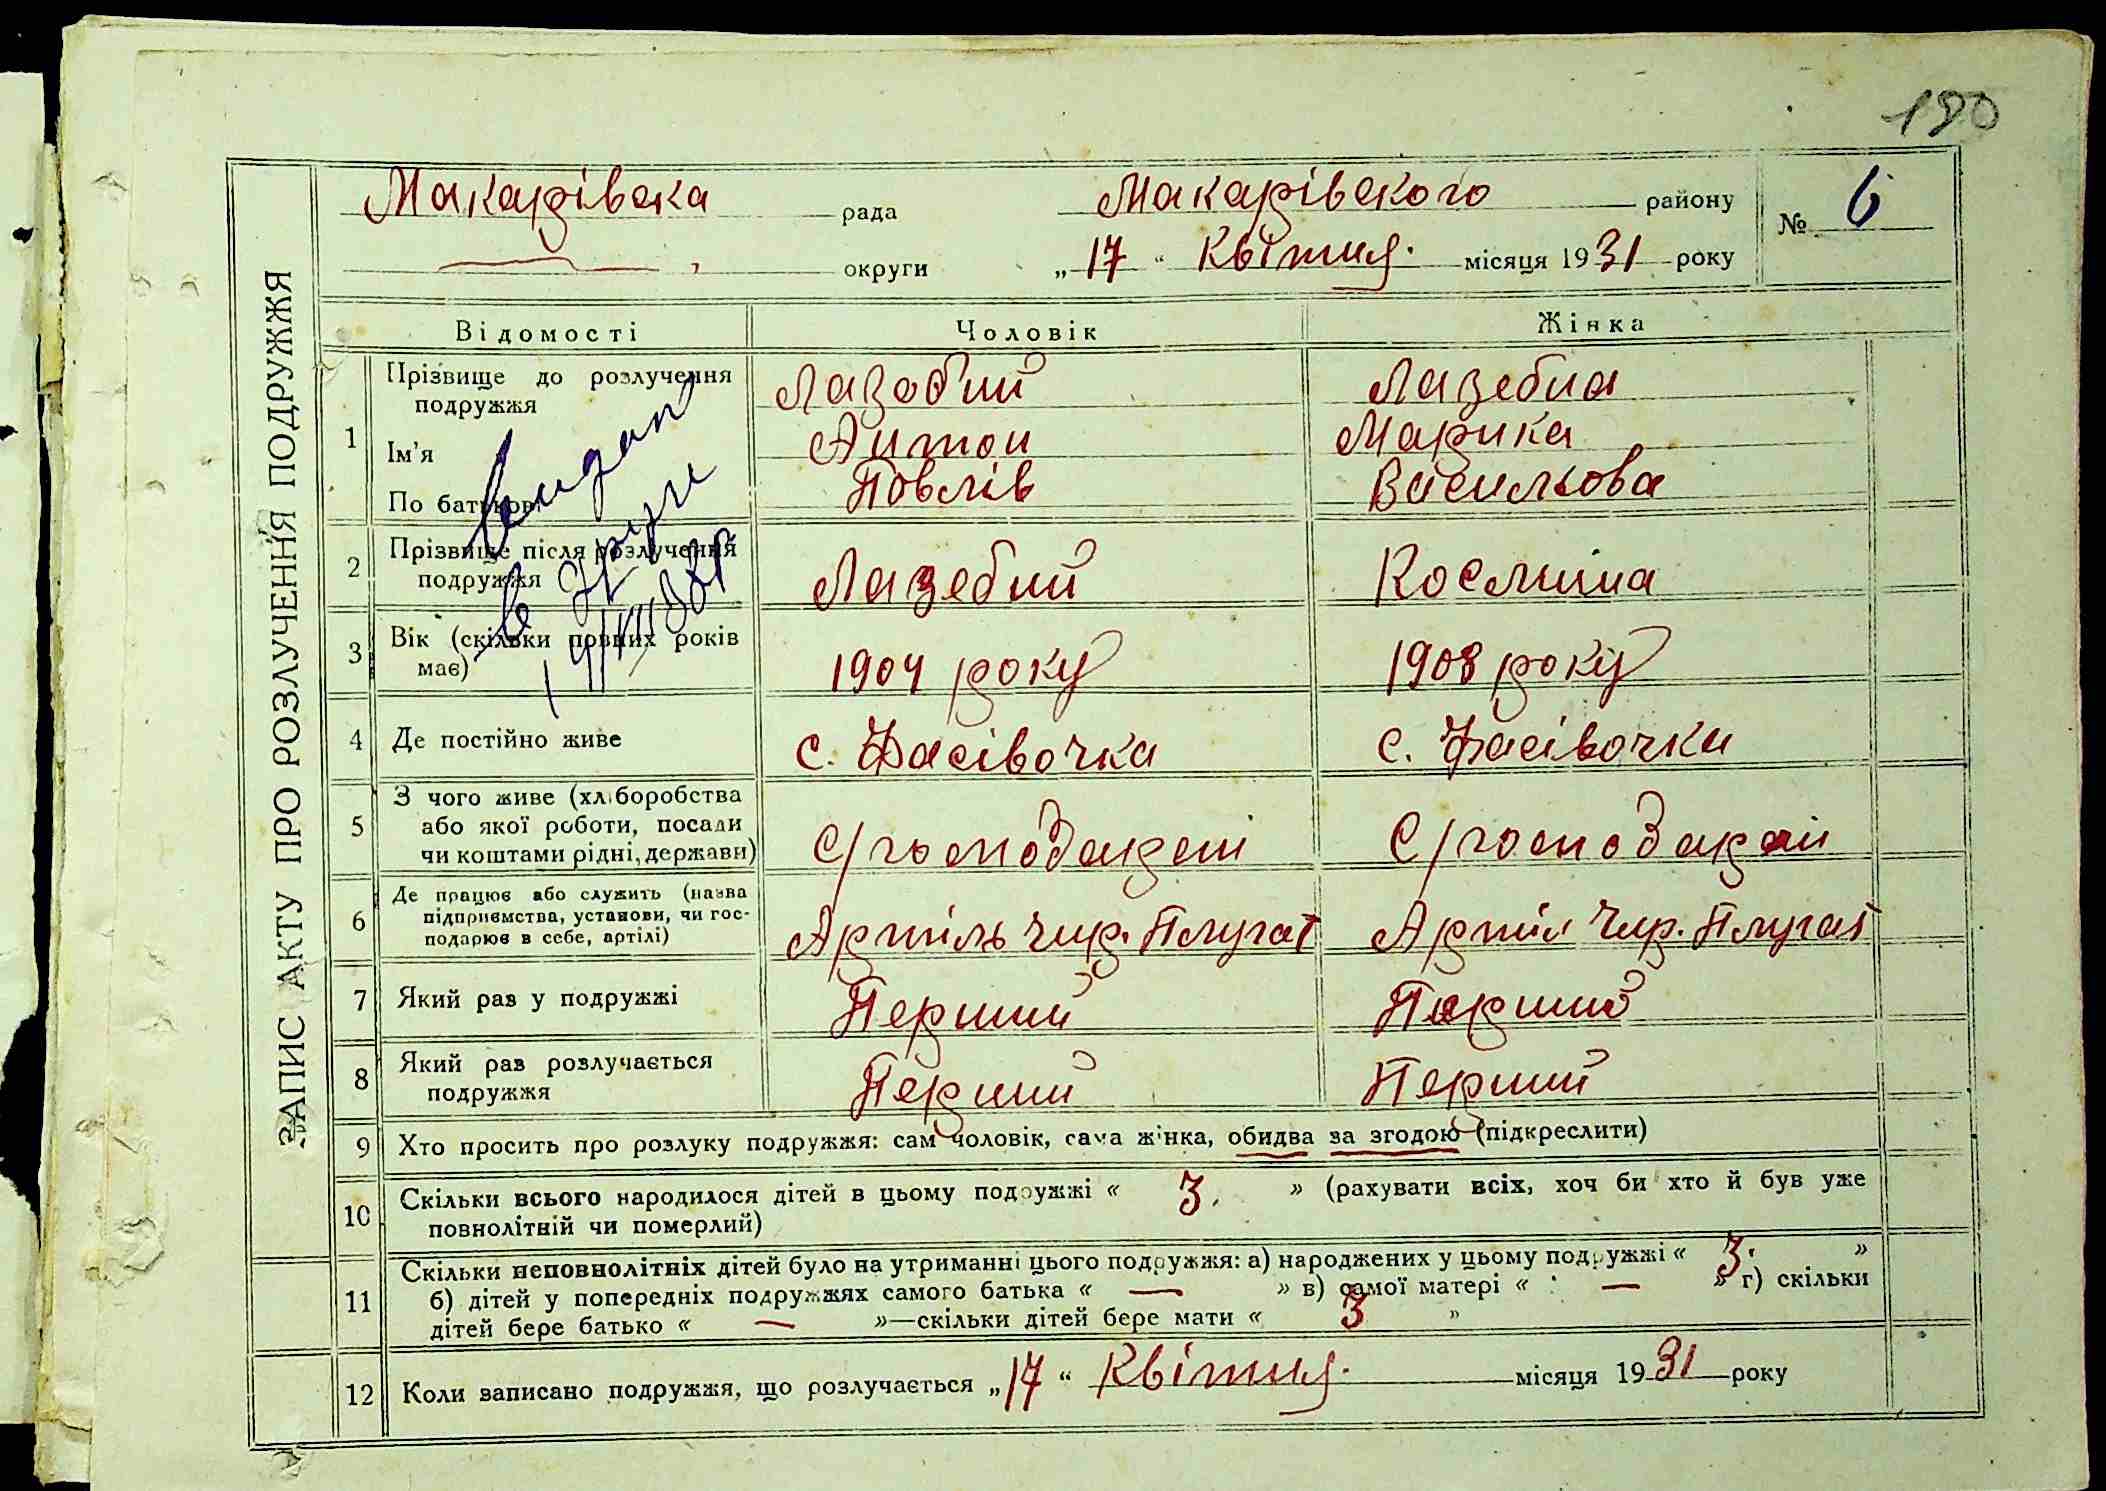 190
ЗАПИС АКТУ ПРО РОЗЛУЧЕННЯ ПОДРУЖЖЯ
Макарівська рада Макарівского району № 6
округи „17“ Квітня місяця 1931 року
Відомості Чоловік Жінка
1 Прізвище до розлучення подружжя Лазебний Лазебна
Ім'я Антон Марика
По батькові Повлів Василькова
2 Прізвище після розлучення подружжя Лазебний
3 Вік (скільки повних років має) 1904 року 1908 року
4 Де постійно живе с. Фасівочка с. Фасівочка
5 З чого живе (хліборобства або якої роботи, посади чи коштами рідні, держави) с/господарст с/господарст
6 Де працює або служить (назва підприємства, установи, чи господарює в себе, артілі) Артіль Чир. Плугат Артіл Чир. Плугат
7 Який раз у подружжі Перший Перший
8 Який раз розлучається подружжя Перший Перший
9 Хто просить про розлуку подружжя: сам чоловік, сама жінка, обидва за згодою (підкреслити)
10 Скільки всього народилося дітей в цьому подружжі « 3. » (рахувати всіх, хоч би хто й був уже
повнолітній чи померлий)
11 Скільки неповнолітніх дітей було на утриманні цього подружжя: а) народжених у цьому подружжі « 3. »
б) дітей у попередніх подружжях самого батька « — » в) самої матері « — » г) скільки
дітей бере батько « — »—скільки дітей бере мати « 3 »
12 Коли записано подружжя, що розлучається „17“ Квітня місяця 1931 року